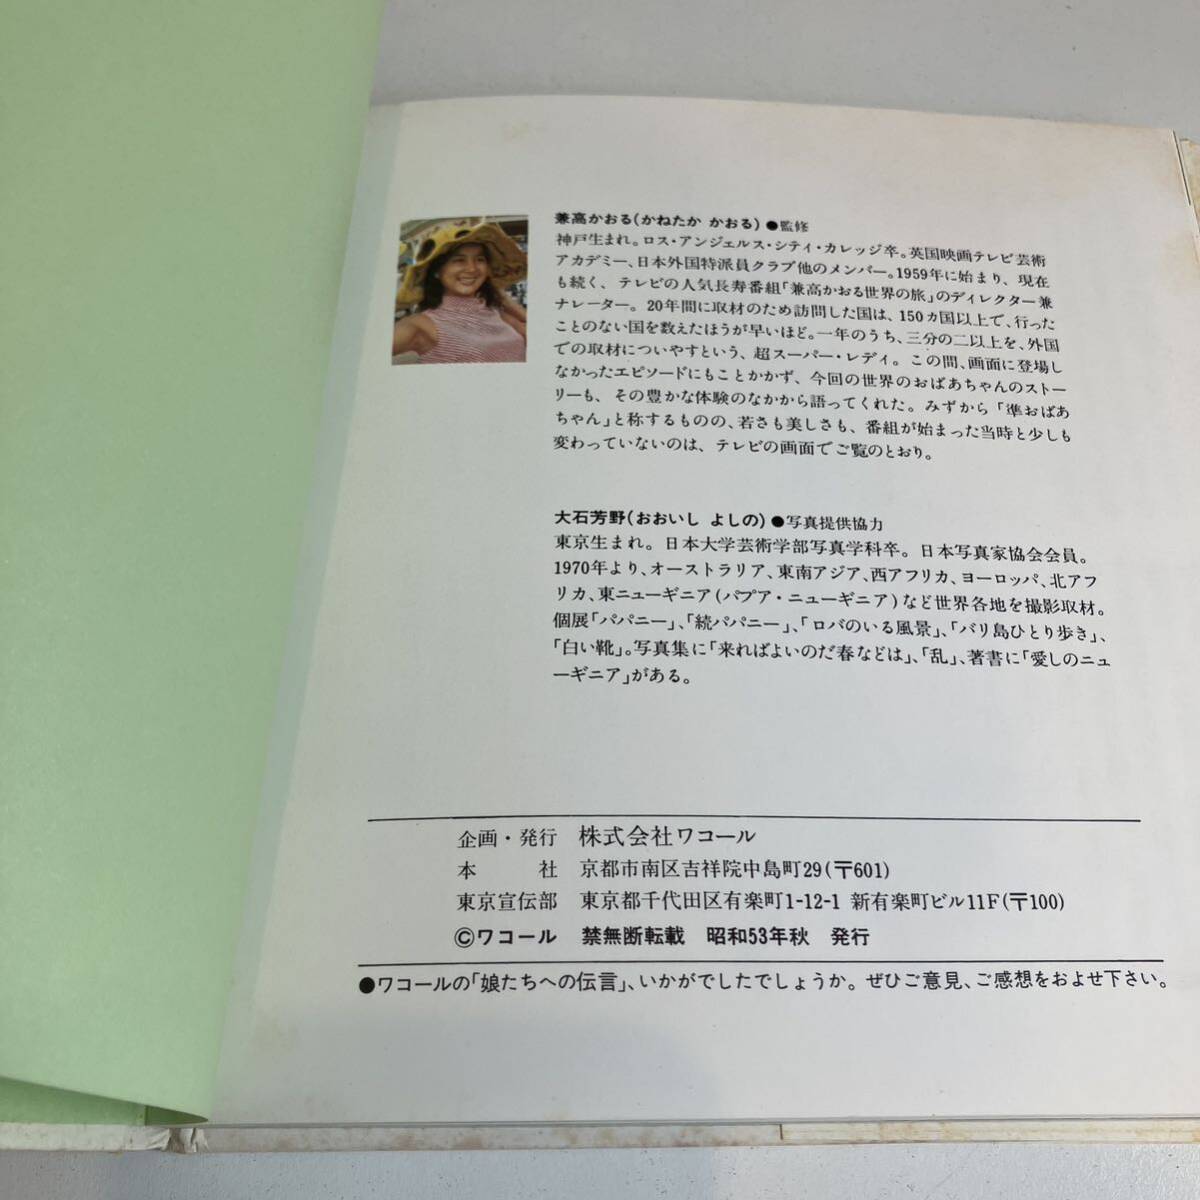 兼高かおる(かねたか かおる)●監修
神戸生まれ。ロス・アンジェルス・シティ・カレッジ卒。英国映画テレビ芸術
アカデミー、日本外国特派員クラブ他のメンバー。1959年に始まり、現在
も続く、テレビの人気長寿番組「兼高かおる世界の旅」のディレクター兼
ナレーター。20年間に取材のため訪問した国は、150ヵ国以上で、行った
ことのない国を数えたほうが早いほど。一年のうち、三分の二以上を、外国
での取材についやすという、超スーパー・レディ。この間、画面に登場し
なかったエピソードにもことかかず、今回の世界のおばあちゃんのストー
リーも、その豊かな体験のなかから語ってくれた。みずから「準おばあ
ちゃん」と称するものの、若さも美しさも、番組が始まった当時と少しも
変わっていないのは、テレビの画面でご覧のとおり。
大石芳野(おおいし よしの)●写真提供協力
東京生まれ。日本大学芸術学部写真学科卒。日本写真家協会会員。
1970年より、オーストラリア、東南アジア、西アフリカ、ヨーロッパ、北アフ
リカ、東ニューギニア(パプア・ニューギニア)など世界各地を撮影取材。
個展「パパニー」、「続パパニー」、「ロバのいる風景」、「バリ島ひとり歩き」、
「白い靴」。写真集に「来ればよいのだ春などは」、「乱」、著書に「愛しのニュ
ーギニア」がある。
企画・発行 株式会社ワコール
本 社 京都市南区吉祥院中島町29(〒601)
東京宣伝部 東京都千代田区有楽町1-12-1 新有楽町ビル11F(〒100)
©ワコール 禁無断転載 昭和53年秋 発行
●ワコールの「娘たちへの伝言」、いかがでしたでしょうか。ぜひご意見、ご感想をおよせ下さい。